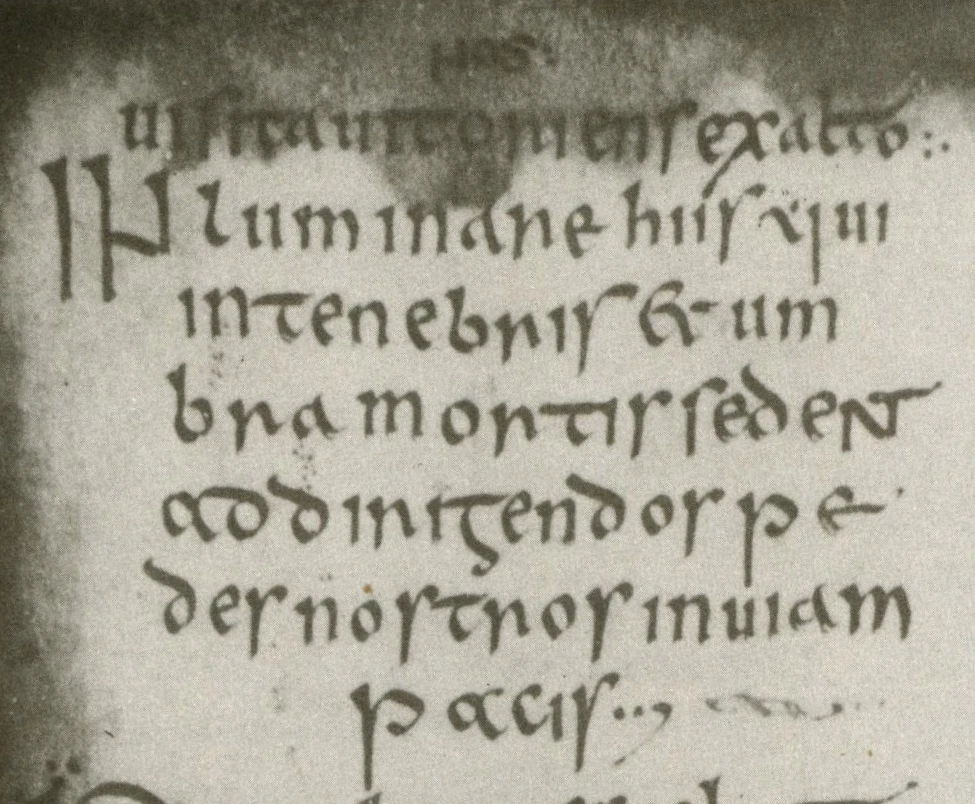 uisitauit oriens ex alto:.
INluminare hiis qui
in tenebris & um
bra mortis sedent
ad dirigendos pe
des nostros in uiam
pacis..,